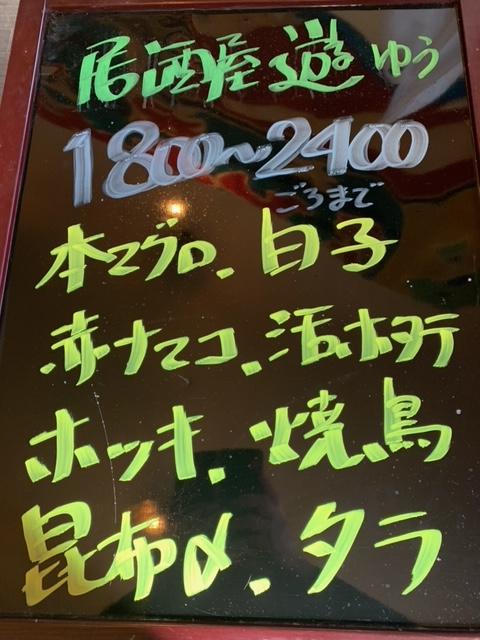 居酒屋 遊 ゆう
1800～2400
ごろまで
本マグロ、白子
赤ナマコ、活ホタテ
ホッキ、焼鳥
昆布〆、タラ